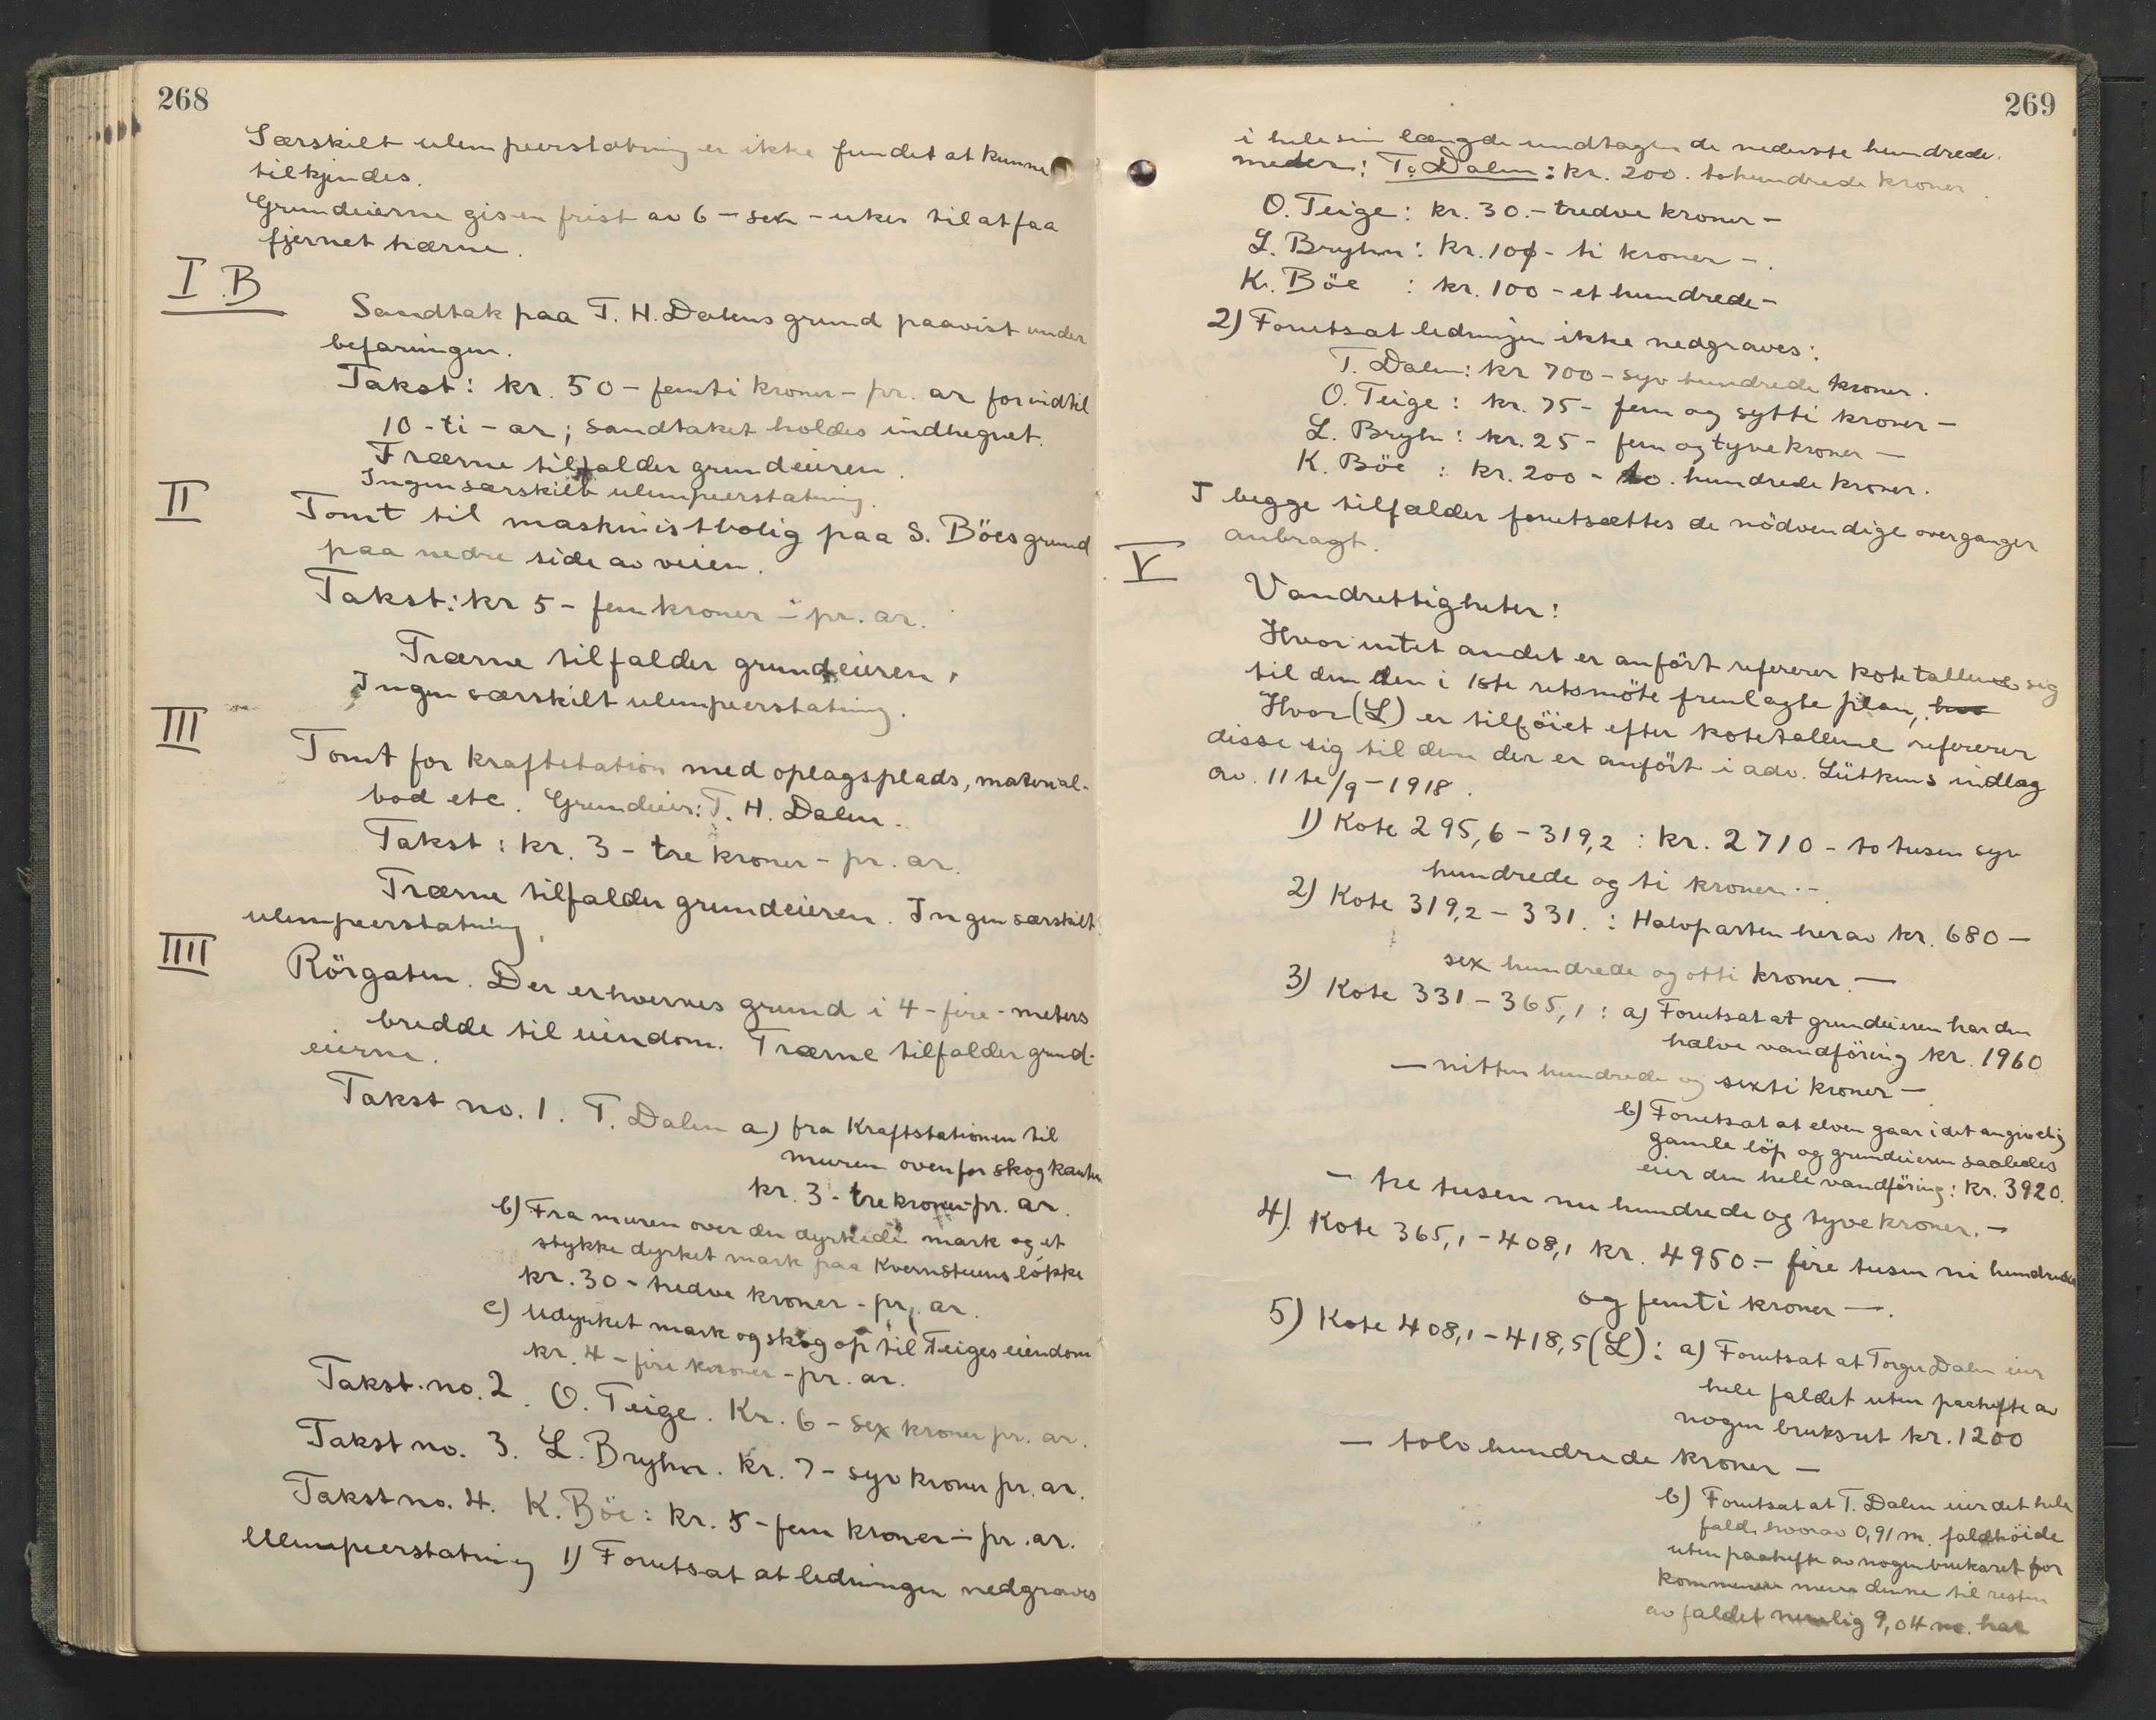 268
Særskilt ulempeerstatning er ikke fundet at kunne
tilkjendes.
Grundeierne gis en frist av 6 - sex - uker til at faa
fjernet trærne.
I B
Sandtak paa T. H. Dalens grund paavist under
befaringen.
Takst: kr. 50 - femti kroner - pr. ar for indtil
10 - ti - ar; sandtaket holdes indhegnet.
Trærne tilfalder grundeieren.
Ingen særskilt ulempeerstatning.
II
Tomt til maskinistbolig paa S. Böes grund
paa nedre side av veien.
Takst: kr 5 - fem kroner - pr. ar.
Trærne tilfalder grundeieren.
Ingen særskilt ulempeerstatning.
III
Tomt for kraftstation med oplagsplads, material-
bod etc. Grundeier: T. H. Dalen.
Takst: kr. 3 - tre kroner - pr. ar.
Trærne tilfalder grundeieren. Ingen særskilt
ulempeerstatning.
IIII
Rörgaten. Der erhverves grund i 4 - fire - meters
bredde til eiendom. Trærne tilfalder grund-
eierne.
Takst no. 1. T. Dalen a) fra Kraftstationen til
muren ovenfor skogkanten
kr. 3 - tre kroner - pr. ar.
b) Fra muren over den dyrkede mark og et
stykke dyrket mark paa Kvernsteens lökke
kr. 30 - tredve kroner - pr. ar.
c) Udyrket mark og skog op til Teiges eiendom
kr. 4 - fire kroner - pr. ar.
Takst no. 2. O. Teige. Kr. 6 - sex kroner pr. ar.
Takst no. 3. L. Bryhn. Kr. 7 - syv kroner pr. ar.
Takst no. 4. K. Böe: kr. 5 - fem kroner - pr. ar.
Ulempeerstatning 1) Forutsat at ledningen nedgraves
269
i hele sin længde undtagen de nederste hundrede
meter: T. Dalen: kr. 200. tohundrede kroner
O. Teige: kr. 30. - tredve kroner -
L. Bryhn: kr. 10 - ti kroner -.
K. Böe : kr. 100 - et hundrede -
2) Forutsat ledningen ikke nedgraves:
T. Dalen: kr 700 - syv hundrede kroner.
O. Teige: kr. 75 - fem og sytti kroner -
L. Bryhn: kr. 25 - fem og tyve kroner -
K. Böe : kr. 200 - to hundrede kroner.
I begge tilfælder forutsættes de nödvendige overganger
anbragt.
V
Vandrettigheter:
Hvor intet andet er anfört refererer kotetallene sig
til den den i 1ste retsmöte fremlagte plan,
Hvor (L) er tilföiet efter kotetallene refererer
disse sig til den der er anfört i adv. Lütkens indlæg
av 11te/9 - 1918.
1) Kote 295,6 - 319,2 : kr. 2710 - to tusen syv
hundrede og ti kroner. -
2) Kote 319,2 - 331. : Halvparten herav kr. 680 -
sex hundrede og otti kroner. -
3) Kote 331 - 365,1 : a) Forutsat at grundeieren har den
halve vandföring kr. 1960
- nitten hundrede og sexti kroner -
b) Forutsat at elven gaar i det angivelig
gamle löp og grundeieren saaledes
eier den hele vandföring: kr. 3920.
- tre tusen ni hundrede og tyve kroner. -
4) Kote 365,1 - 408,1 kr. 4950. - fire tusen ni hundrede
og femti kroner -.
5) Kote 408,1 - 418,5 (L): a) Forutsat at Torger Dalen eier
hele faldet uten paahefte av
nogen bruksret kr. 1200
- tolv hundrede kroner -
b) Forutsat at T. Dalen eier det hele
fald hvorav 0,91 m. faldhöide
uten paahefte av nogen bruksret for
kommer mens denne til resten
av faldet nemlig 9,04 m. har